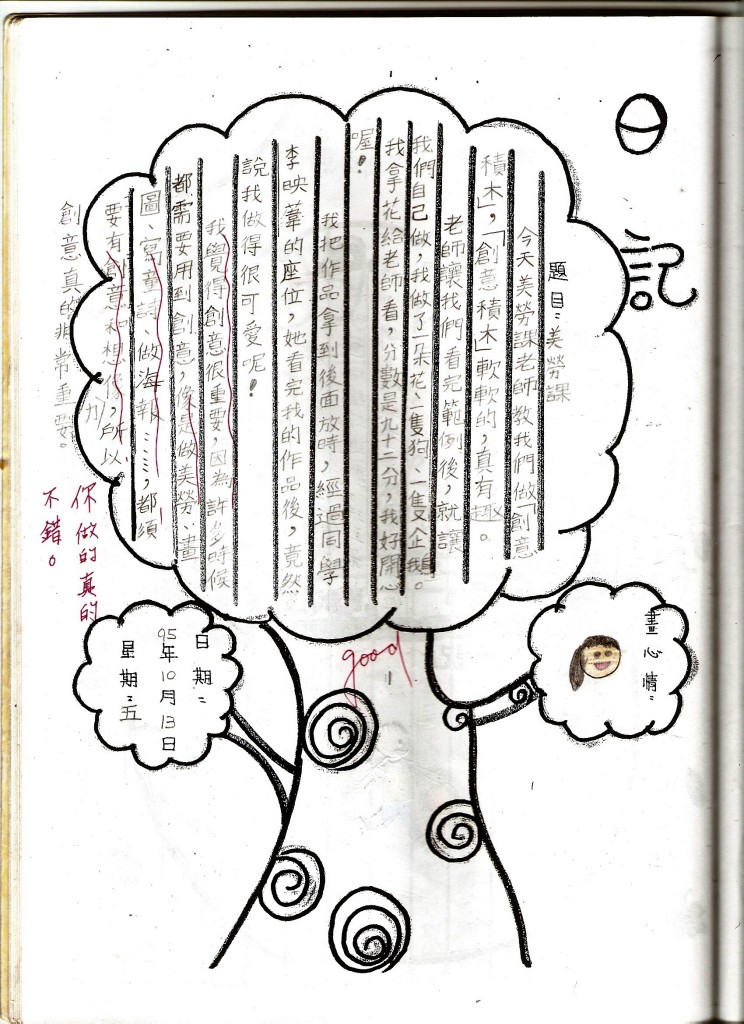 日記
題目:美勞課
今天美勞課老師教我們做「創意
積木」,「創意積木」軟軟的,真有趣。
老師讓我們看完範例後,就讓
我們自己做,我做了一朵花、一隻狗、一隻企鵝。
我拿花給老師看,分數是九十二分,我好開心
喔!
我把作品拿到後面放時,經過同學
李映葦的座位,她看完我的作品後,竟然
說我做得很可愛呢!
我覺得創意很重要,因為許多時候
都需要用到創意,像是做美勞、畫
圖、寫童詩、做海報……,都須
要有創意和想像力,所以
創意真的非常重要。
你做的真的
不錯。
good
畫心情:
日期:
95年10月13日
星期:五